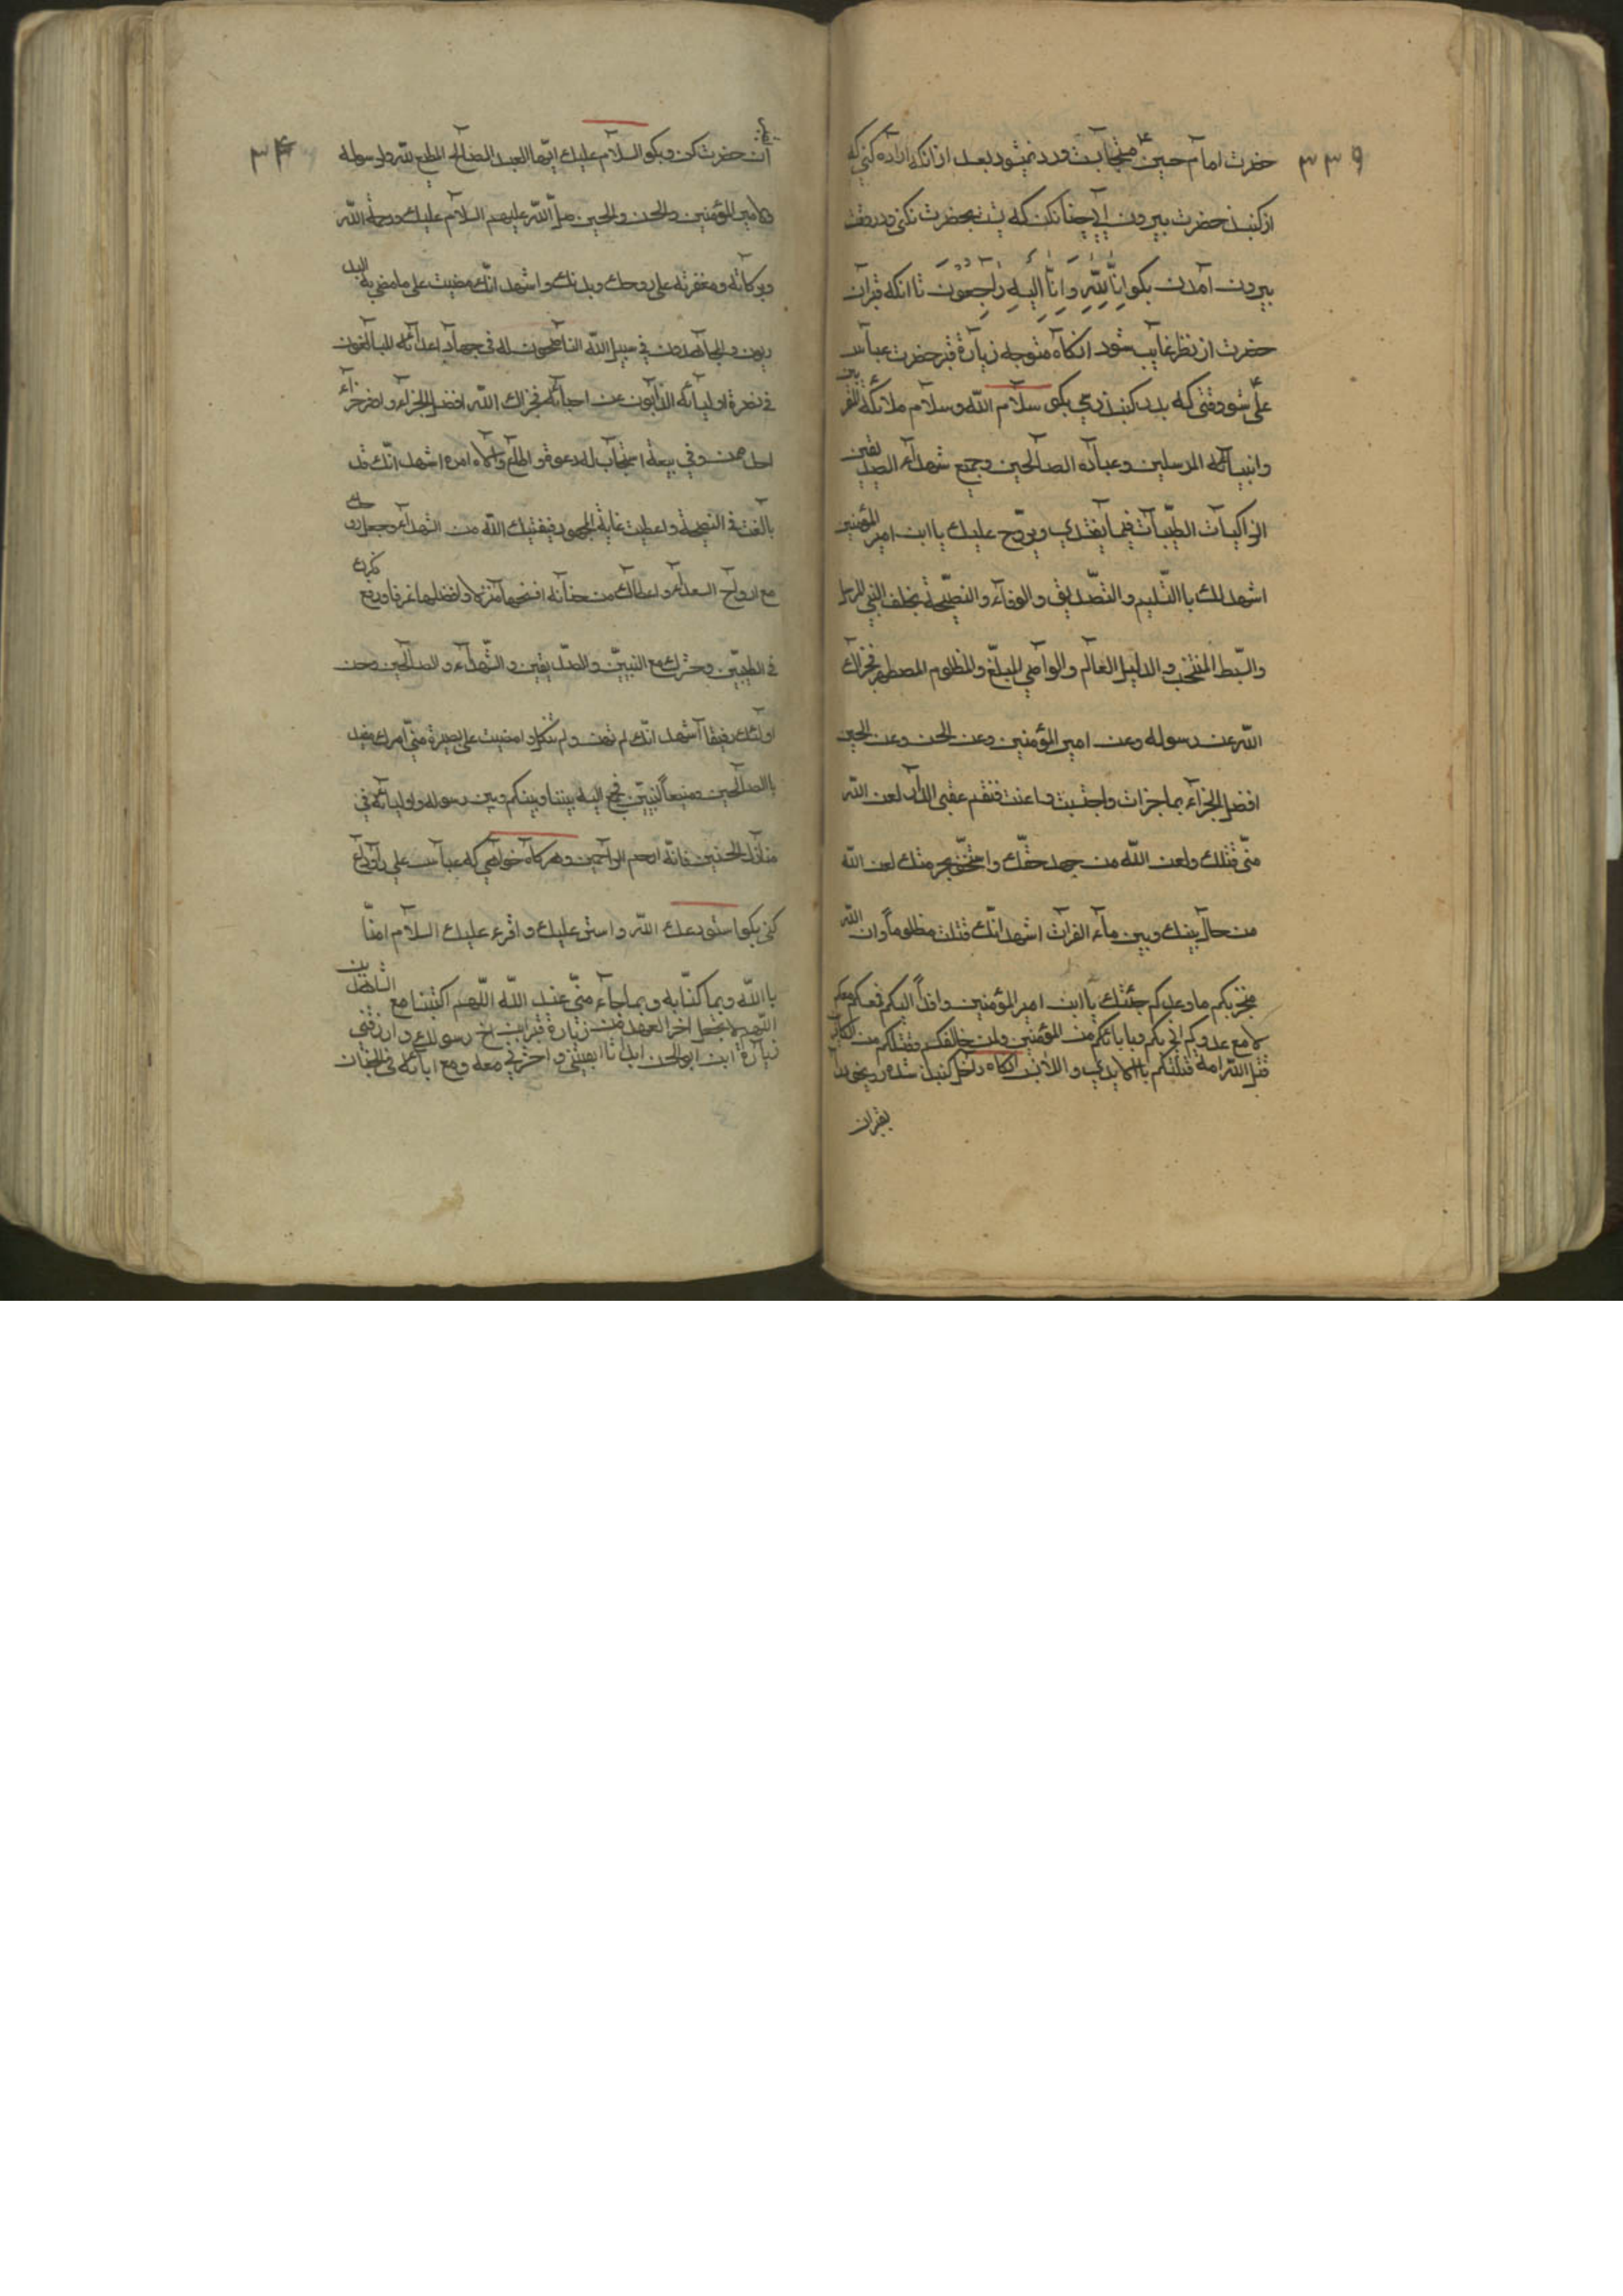 ۳۳۹
حضرت امام حسین ع مستجابست ورد نمیشود بعد از آنکه اراده کنی که
از کنبذ حضرت بیرون ایی چنان کن که پشت بحضرت نکنی و در وقت
بیرون آمدن بکو اِنَّا لِلّٰهِ وَ اِنَّا اِلَیْهِ رَاجِعُونَ تا انکه قبر آن
حضرت از نظر غایب شود انکاه متوجه زیارة قبر حضرت عباس
علی شو وقتی که بدر کنبذ رسی بکو سلام الله و سلام ملائکة المقربین
وانبیائه المرسلین وعباده الصالحین وجمیع شهداء الصدیقین
الزاکیات الطیّبات فیما یغتدی ویروّح علیك یا ابن امیر المؤمنین
اشهد لك بالتّسلیم والتّصدیق والوفآء والنصّیحة بخلف النبی المرسل
والسّبط المنتجب والدلیل العالم والواصی المبلّغ والمظلوم المضطهد فجزاك
الله عن رسوله وعن امیر المؤمنین وعن الحسن وعن الحسین
افضل الجزآء بما واعنت فنعم عقبی الدار لعن الله
منّی قتلك ولعن الله من جهد حقّك واستخّف بحرمتك لعن الله
من حال بینك وبین مآء الفرات اشهد انّك قتلت مظلوماً وان الله
منجز بکم ما وعدکم جئتك یا ابن امیر المؤمنین وافداً الیکم فمعکم معکم
لا مع عدوکم انی بکم وبابائکم من المؤمنین ولمن خالفکم وقتلکم من الکافرین
قتل الله امة قتلتکم بالایدی والالسن انکاه داخل کنبذ شده
بقبر ان
۳۴
آن حضرت کن وبکو السلام علیك ایّها العبد الصالح المطیع لله ولرسوله
ولامیر المؤمنین والحسن والحسین صلّ الله علیهم السلام علیك ورحمة الله
وبرکاته ومغفرته علی روحك وبدنك واشهد انّك مضیت علی ما مضی به البد
ریون والمجاهدون فی سبیل الله الناصحون له فی جهاد اعدائه المبالغون
فی نصرة اولیائه الذابون عن احبائه فجزاك الله افضل الجزآء و جزاء
احد ممن وفی بیعته استجاب له دعوته و اطاع ولاه امره اشهد انّك قد
بالغت فی النصیحة واعطیت غایة المجهود فبعثك الله من الشهدآء وجعل روحك
مع ارواح السعدآء واعطاك من جنانه افسحها منزلا وافضلها غرفا ورفع ذکرك
فی الطیبین وحشرك مع النبیین والصّدیقین والشّهدآء والصالحین وحسن
اولئك رفیقا اشهد انّك لم تهن ولم تنکل وامضیت علی بصیرة منّی امرك مقید
بالصالحین ومتبعاً لنبیّین فجمع الیه بیننا وبینکم وبین رسوله واولیائه فی
منازل المحسنین فانّه ارحم الراحمین وهرکاه خواهی که عباس علی را وداع
کنی بکو استودعك الله واسترعیك واقرء علیك السلام امنّا
بالله وبما کتابه وبما جآء منّی عند الله اللّهم اکتبنا مع الشاهدین
اللّهم لا تجعل اخر العهد من زیارة قبر ابن اخ رسولك وارزقنی
زیارة ابن ابو الحسن ابدا ما ابقیتنی واحشرنی معه ومع ابائه فی الجنان